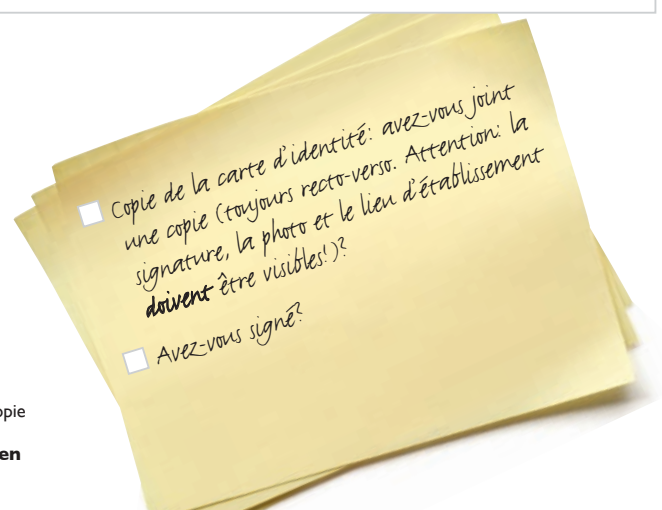 Copie de la carte d'identité: avez-vous joint
une copie (toujours recto-verso. Attention: la
signature, la photo et le lieu d'établissement
doivent être visibles!)?
Avez-vous signé?
opie
en